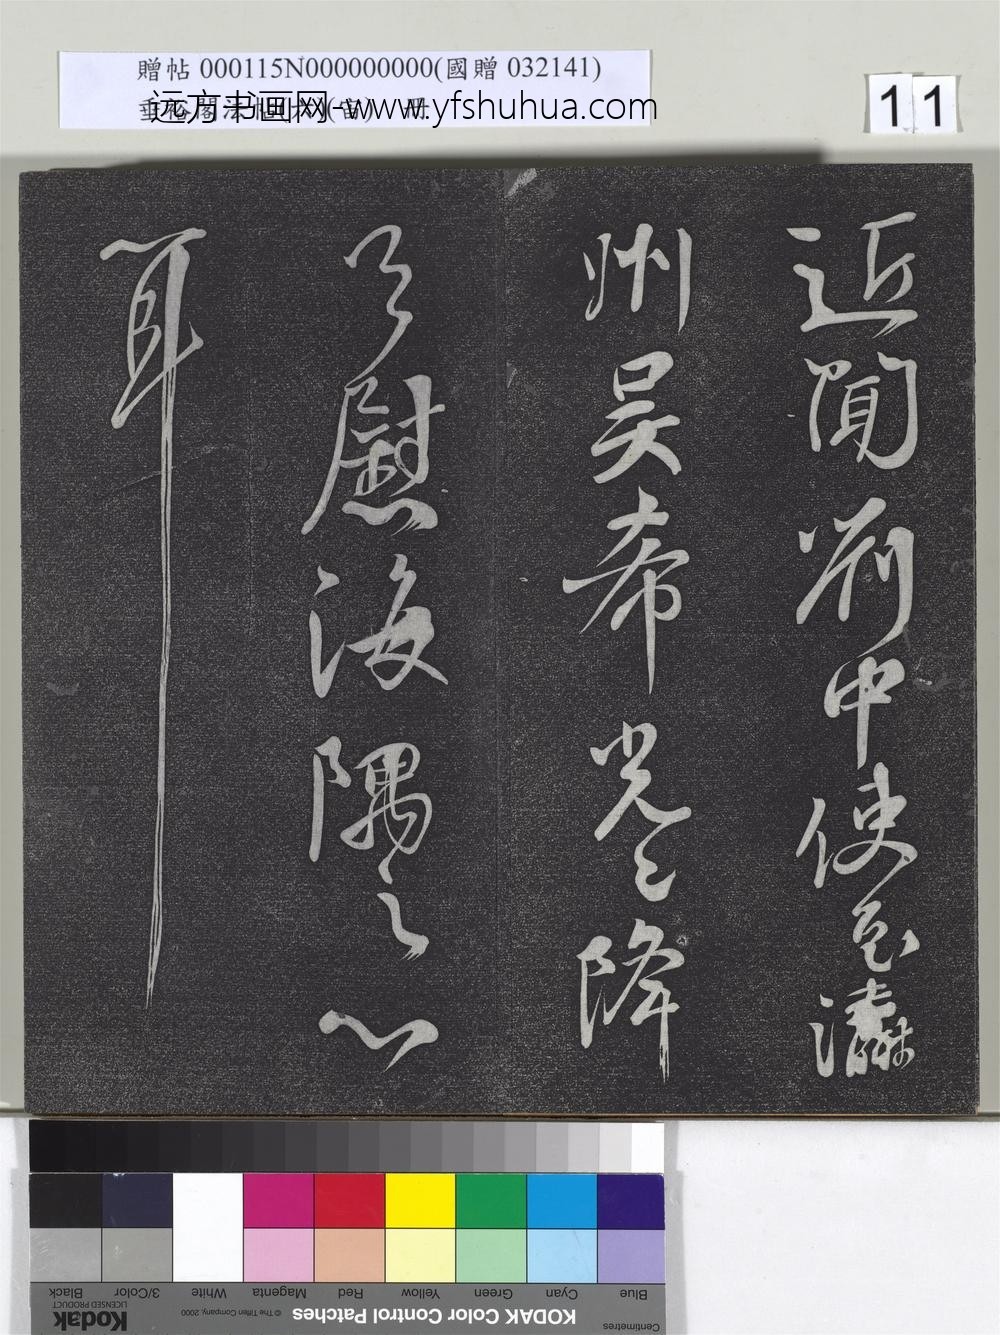 贈帖 000115N000000000(國贈 032141)
远方书画网-www.yfshuhua.com
11
近聞劉中使至瀛
州吳希光已降
足慰海隅之心
耳
Blue Cyan Green Yellow Red Magenta White 3/Color Black
Centimetres
KODAK Color Control Patches
© The Tiffen Company, 2000
Kodak
LICENSED PRODUCT